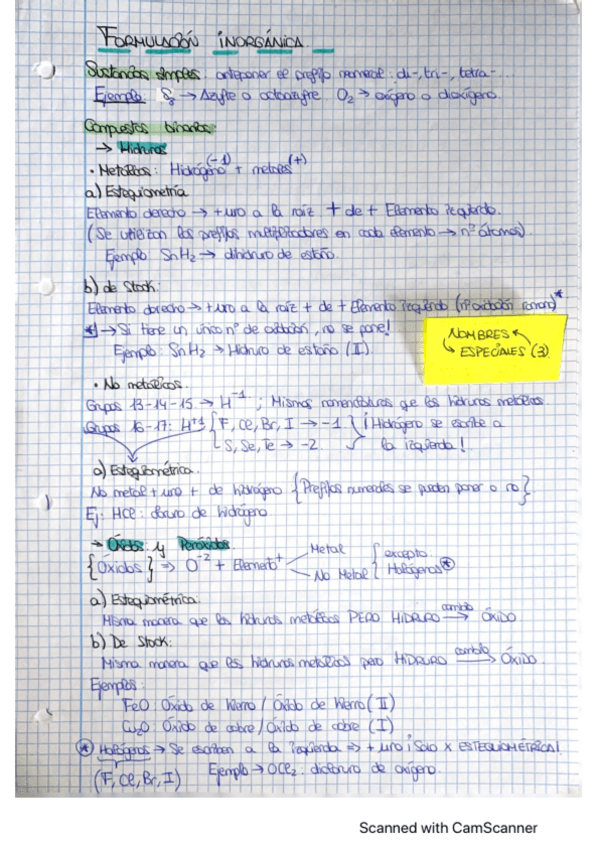 FORMULACIÓN INORGÁNICA
Sustancias simples: anteponer el prefijo numeral: di-, tri-, tetra-...
Ejemplo: S8 → Azufre o octoazufre. O2 → oxígeno o dioxígeno.
Compuestos binarios
→ Hidruros
• Metálicos: Hidrógeno(-1) + metales(+)
a) Estequiometría
Elemento derecho → +uro a la raíz + de + Elemento izquierdo.
(Se utilizan los prefijos multiplicadores en cada elemento → nº átomos).
Ejemplo: SnH2 → dihidruro de estaño.
b) de Stock:
Elemento derecho → +uro a la raíz + de + Elemento izquierdo (nº oxidación romano)*
*→ Si tiene un único nº de oxidación, no se pone!
Ejemplo: SnH2 → Hidruro de estaño (I)
NOMBRES
ESPECIALES (3).
• No metálicos.
Grupos 13-14-15 → H-1 ; Mismas nomenclaturas que los hidruros metálicos.
Grupos 16-17: H+1 { F, Cl, Br, I → -1 } ¡Hidrógeno se escribe a
S, Se, Te → -2 la izquierda!
a) Estequiométrica.
No metal + uro + de hidrógeno {Prefijos numerales se pueden poner o no}.
Ej: HCl: cloruro de hidrógeno
→ Óxidos y Peróxidos.
{Óxidos} ⇒ O-2 + Elemento+ Metal { excepto
No Metal Halógenos*
a) Estequiométrica:
Misma manera que los hidruros metálicos PERO HIDRURO cambia→ ÓXIDO.
b) De Stock:
Misma manera que los hidruros metálicos pero HIDRURO cambia→ ÓXIDO.
Ejemplos:
FeO: Óxido de hierro / Óxido de hierro (II)
Cu2O: Óxido de cobre / Óxido de cobre (I)
* Halógenos → Se escriben a la izquierda ⇒ + uro ¡Solo x ESTEQUIOMÉTRICA!
(F, Cl, Br, I) Ejemplo → OCl2: dicloruro de oxígeno.
Scanned with CamScanner